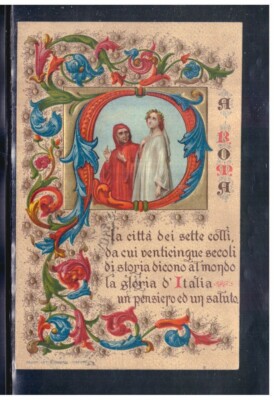 A
ROMA
Alla città dei sette colli,
da cui venticinque secoli
di storia dicono al mondo
la gloria d'Italia
un pensiero ed un saluto.